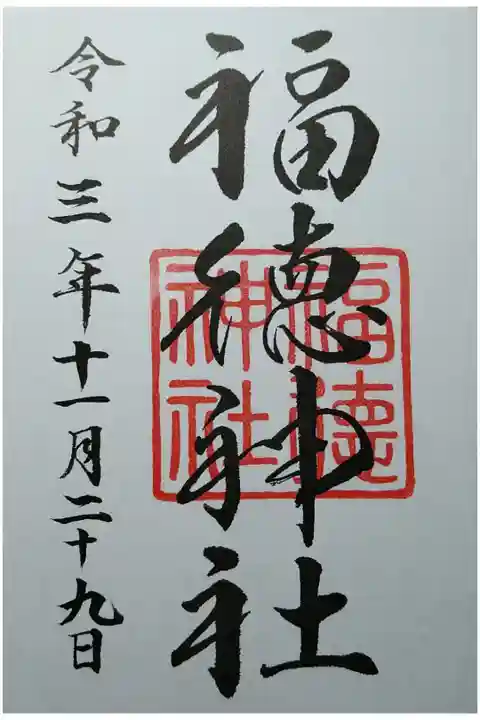 福徳神社
福德神社
令和三年十一月二十九日